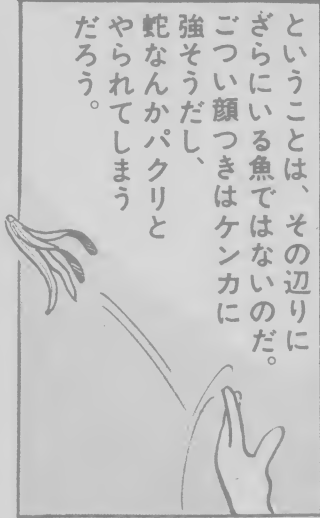 ということは、その辺りに
ざらにいる魚ではないのだ。
ごつい顔つきはケンカに
強そうだし、
蛇なんかパクリと
やられてしまう
だろう。